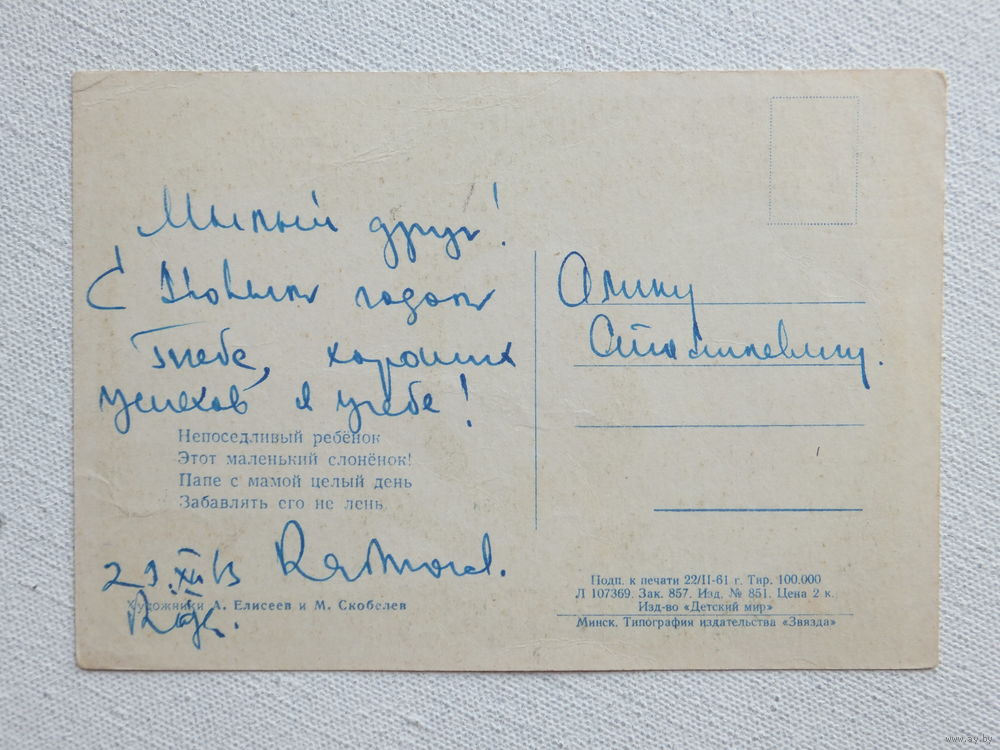 Милый друг!
С Новым годом
Тебе, хороших
успехов в учебе!
Непоседливый ребёнок
Этот маленький слонёнок!
Папе с мамой целый день
Забавлять его не лень
29.XII 63
Rīga.
Художники А. Елисеев и М. Скобелев
Алику
Подп. к печати 22/II-61 г. Тир. 100.000
Л 107369. Зак. 857. Изд. № 851. Цена 2 к.
Изд-во «Детский мир»
Минск. Типография издательства «Звязда»
www.ay.by